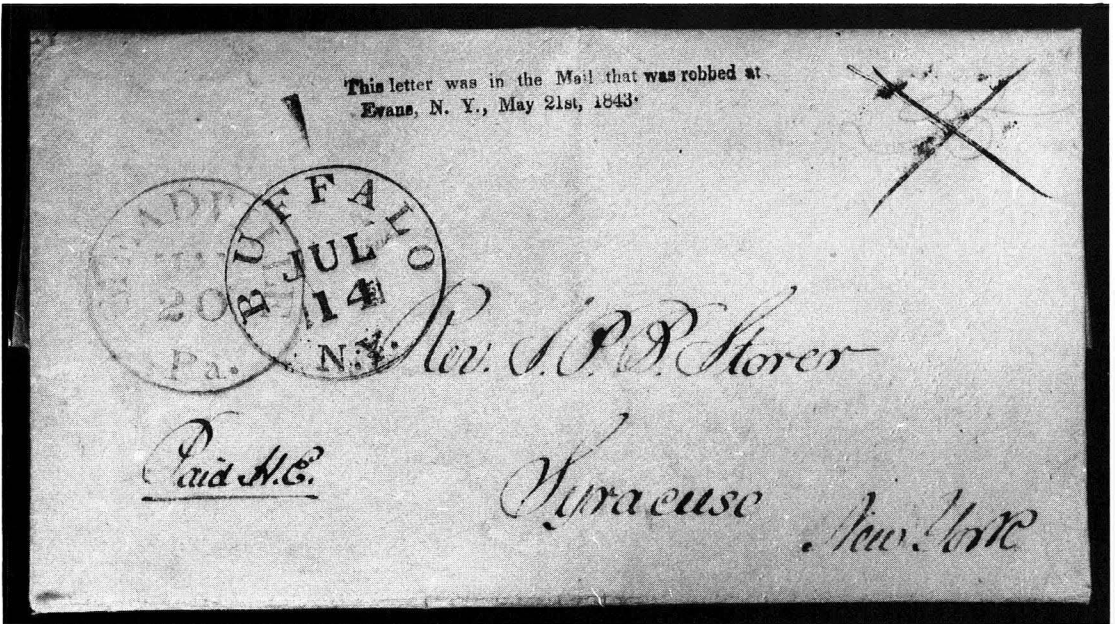 This letter was in the Mail that was robbed at
Evans, N. Y., May 21st, 1843.
BUFFALO
JUL
14
N.Y.
20
Pa.
Rev. J. P. B. Storer
Paid H.E.
Syracuse
New York